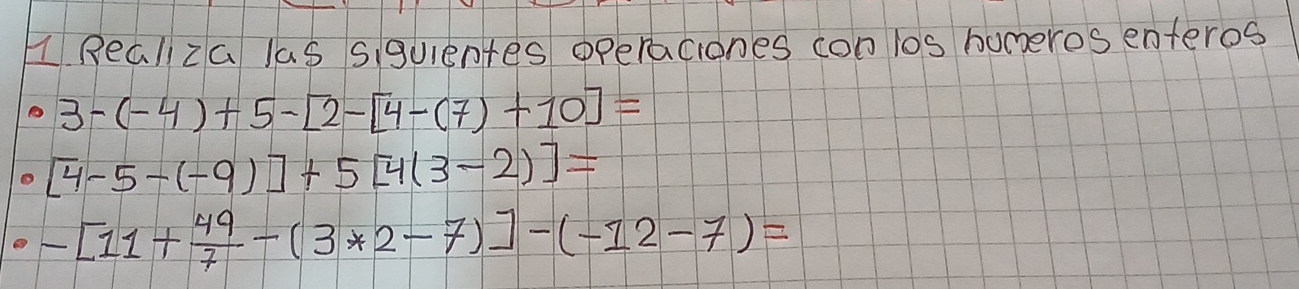 1 Realiza las siguientes operaciones con los numeros enteros
• 3-(-4)+5-[2-[4-(7)+10]=
• [4-5-(-9)]+5[4(3-2)]=
• -[11+\frac{49}{7}-(3*2-7)]-(-12-7)=